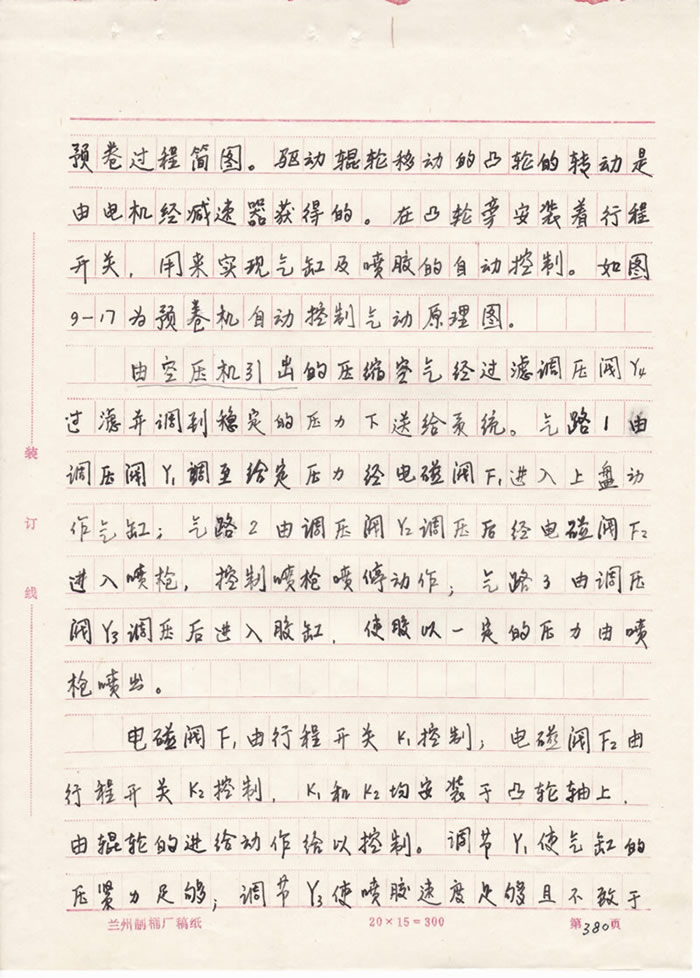 预卷过程简图。驱动辊轮移动的凸轮的转动是
由电机经减速器获得的。在凸轮旁安装着行程
开关，用来实现气缸及喷胶的自动控制。如图
9-17为预卷机自动控制气动原理图。
由空压机引出的压缩空气经过滤调压阀Y4
过滤并调到稳定的压力下送给系统。气路1由
调压阀Y1调至给定压力经电磁阀F1进入上盘动
作气缸；气路2由调压阀Y2调压后经电磁阀F2
进入喷枪，控制喷枪喷停动作；气路3由调压
阀Y3调压后进入胶缸，使胶以一定的压力由喷
枪喷出。
电磁阀F1由行程开关K1控制；电磁阀F2由
行程开关K2控制，K1和K2均安装于凸轮轴上，
由辊轮的进给动作给以控制。调节Y1使气缸的
压紧力足够；调节Y3使喷胶速度足够且不致于
装
订
线
兰州制桶厂稿纸 20×15=300 第380页